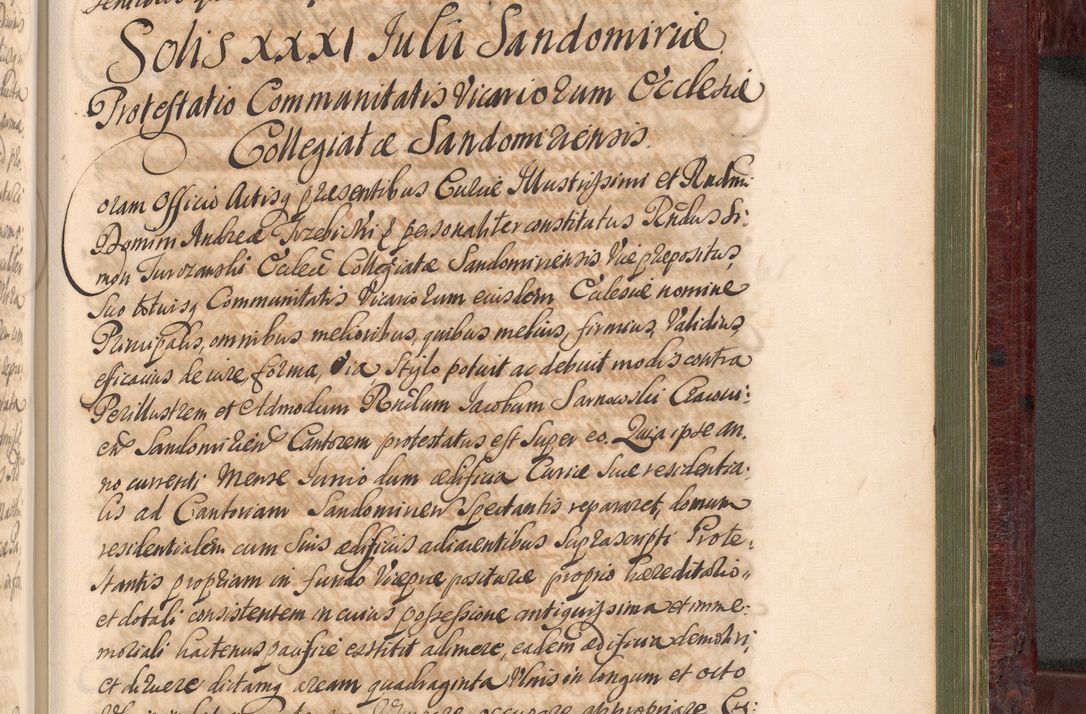 Solis XXXI Iulii Sandomiriæ
Protestatio Communitatis Vicariorum Ecclesiæ
Collegiatæ Sandomiriensis.
oram Officio Actisq presentibus Curiæ Illustrissimi et Rndmi
Domini Andreæ Trzebicki & personaliter constitutus Rndus Si:
mon Ecclæ Collegiatæ Sandomiriensis Viceprepositus,
Suo totiusq Communitatis Vicariorum eiusdem Ecclesiæ nomine
Principalis, omnibus melioribus, quibus melius, firmius, Validius
efficacius de iure, forma, Via, Stylo potuit ac debuit modis contra
Perillustrem et Admodum Rndum Iacobum Sarnowski Cracovi:
en Sandomirien Cantorem protestatus est Super eo. Quia ipse an.
no currenti Mense Iunio dum ædificia Curiæ Suæ residentia:
lis ad Cantoriam Sandomirien Spectantis repararet, domum
residentialem cum Suis ædificiis adiacentibus Suprascripti Prote,
stantis propriam in fundo Vicepræpositurae proprio hæreditario,
et dotali consistentem in cuius possessione antiquissima et imme:
moriali hactenus pacifice extitit adimere, eadem ædificia demoliri,
et diruere dictamq aream quadraginta Ulnis in longum et octo
occupare appropriare